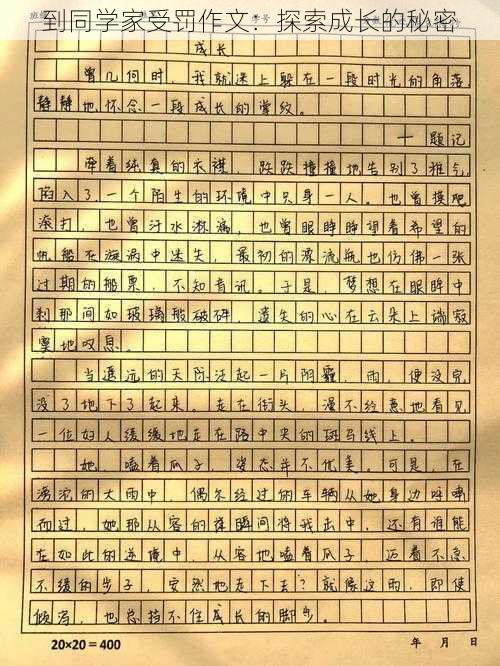 到同学家受罚作文：探索成长的秘密
成长
曾几何时，我就迷上躲在一段时光的角落，
静静地怀念一段成长的掌纹。
——题记
牵着纯真的衣襟，跌跌撞撞地告别了稚气，
陷入了一个陌生的环境中只身一人。也曾摸爬
滚打，也曾汗水淋漓，也曾眼睁睁望着希望的
帆船在漩涡中迷失，最初的漂流瓶也仿佛一张
过期的船票，不知音讯。于是，梦想在眼眸中
刹那间如玻璃般破碎，遗失的心在云朵上端寂
寞地叹息。
当遥远的天际泛起一片阴霾，雨，便没完
没了地下了起来。走在街头，漫不经意地看见
一位妇人缓缓地走在路中央的斑马线上。
她，嗑着瓜子，姿态并不优美。可是，在
滂沱的大雨中，偶尔经过的车辆从她身边呼啸
而过，她那从容的模瞬间将我击中，还有谁能
在如此的逆境中，从容地嗑着瓜子，迈着不急
不缓的步子，安然地走下去？就像这雨，即使
倾泻，也总挡不住成长的脚步。
20×20=400
年 月 日